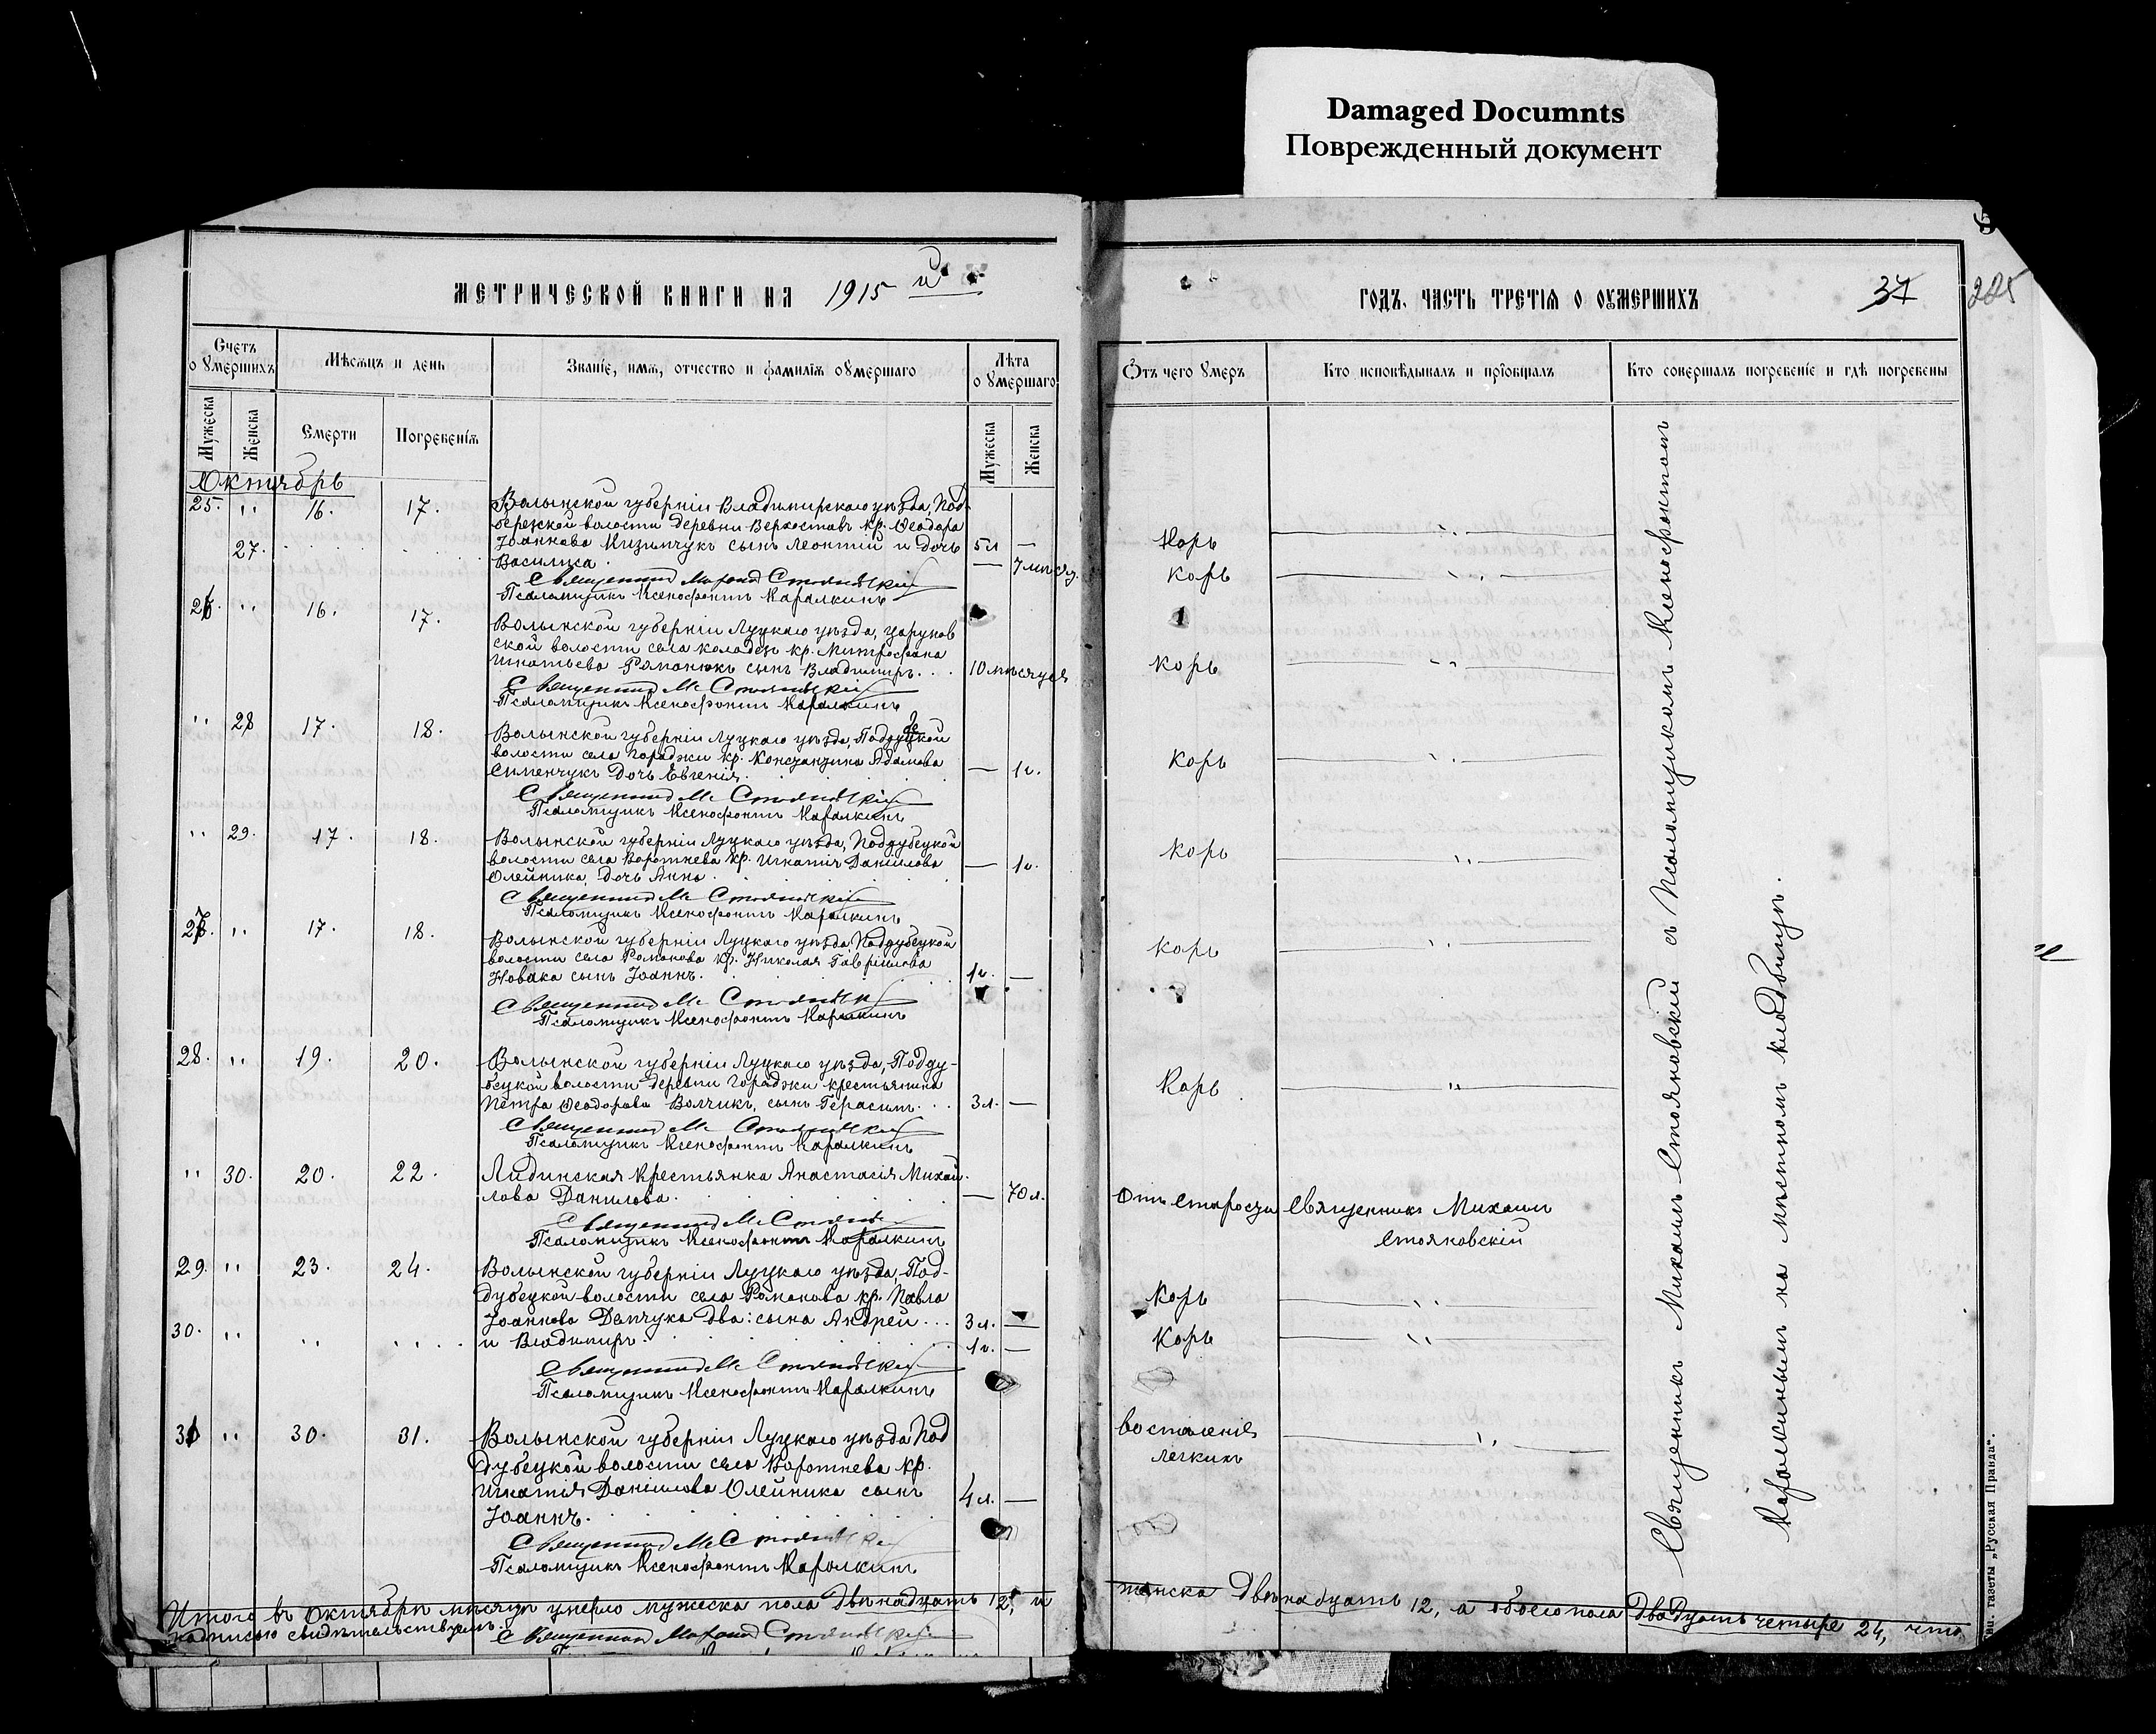 Damaged Documnts
Поврежденный документ
МЕТРИЧЕСКОЙ КНИГИ НА 1915 й
Счетъ оумершихъ
Мѣсяцъ и день
Званіе, имя, отчество и фамилія оумершаго
Лѣта оумершаго
Мужеска
Женска
Смерти
Погребенія
Мужеска
Женска
Октябрь
25. " 16. 17. Волынской губерніи Владимирскаго уѣзда, Под-
бережской волости деревни Верхоставъ кр. Ѳеодора
27. Іоаннова Мизимчукъ сынъ Леонтій и дочь 5 л —
Василиса. — 7 мѣсяц.
Священникъ Михаилъ Стояновскій
Псаломщикъ Ксенофонтъ Каралкинъ
26. " 16. 17. Волынской губерніи Луцкаго уѣзда,
ской волости села Колодези кр. Митрофана
Игнатьева Романюкъ сынъ Владимиръ. 10 мѣсяцев
Священникъ М. Стояновскій
Псаломщикъ Ксенофонтъ Каралкинъ
" 28 17. 18. Волынской губерніи Луцкаго уѣзда, Поддубецкой
волости села Гораджи кр. Констанзина Адамова
Сименчукъ дочь Евгенія. — 1 г.
Священникъ М. Стояновскій
Псаломщикъ Ксенофонтъ Каралкинъ
" 29. 17. 18. Волынской губерніи Луцкаго уѣзда, Поддубецкой
волости села Воротнева кр. Игнатія Даніилова
Олейника дочь Анна. — 1 г.
Священникъ М. Стояновскій
Псаломщикъ Ксенофонтъ Каралкинъ
27. " 17. 18. Волынской губерніи Луцкаго уѣзда, Поддубецкой
волости села Романова кр. Николая Гавріилова
Новака сынъ Іоаннъ. 1 г. —
Священникъ М. Стояновск
Псаломщикъ Ксенофонтъ Каралкинъ
28. " 19. 20. Волынской губерніи Луцкаго уѣзда,Подду-
бецкой волости деревни Гораджи крестьянина
Петра Ѳеодорова Волчикъ, сынъ Герасимъ. 3 л. —
Священникъ М. Стояновскій
Псаломщикъ Ксенофонтъ Каралкинъ
" 30. 20. 22. Лидинская крестьянка Анастасія Михай-
лова Данилова. — 70 л.
Священникъ М. Стоянов
Псаломщикъ Ксенофонтъ Каралкинъ
29. " 23. 24. Волынской губерніи Луцкаго уѣзда, Под-
дубецкой волости села Романова кр. Павла
Іоаннова Демчука два: сына Андрей 3 л. —
30. " " " и Владимиръ. 1 г. —
Священникъ М. Стояновскій
Псаломщикъ Ксенофонтъ Каралкинъ
31 " 30. 31. Волынской губерніи Луцкаго уѣзда Под
дубецкой волости села Воротнева кр.
Игнатія Даніилова Олейника сынъ 4 л. —
Іоаннъ.
Священникъ М. Стояновскій
Псаломщикъ Ксенофонтъ Каралкинъ
Итого въ Октябрѣ мѣсяцѣ умерло мужеска пола двѣнадцать 12, и
подписью свидѣтельствуемъ. Священникъ Михаилъ Стояновскій
ГОДЪ. ЧАСТЬ ТРЕТІЯ О ОУМЕРШИХЪ
37
205
Отъ чего умеръ
Кто исповѣдывалъ и пріобщалъ
Кто совершалъ погребеніе и гдѣ погребены
Корь
Корь
Корь
Корь
Корь
Корь
Корь
Отъ старосци Священникъ Михаилъ
Стояновскій
Корь
Корь
востоленія
легкихъ
Священникъ Михаилъ Стояновскій съ Псаломщикомъ Ксенофонтомъ
Каралкинымъ на мѣстномъ кладбищѣ.
женска двѣнадцать 12, а обоего пола двадцать четыре 24, что
газеты „Русская Правда“.